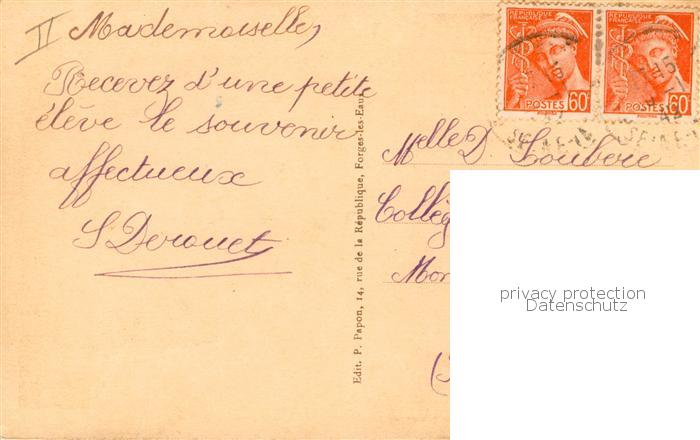 II Mademoiselle,
Recevez d'une petite
élève le souvenir
affectueux
S Derouet
Edit. P. Papon, 14, rue de la République, Forges-les-Eaux
RÉPUBLIQUE FRANÇAISE
POSTES 60
RÉPUBLIQUE FRANÇAISE
POSTES 60
Melle D. Loubere
Collèg
Mon
(
privacy protection
Datenschutz